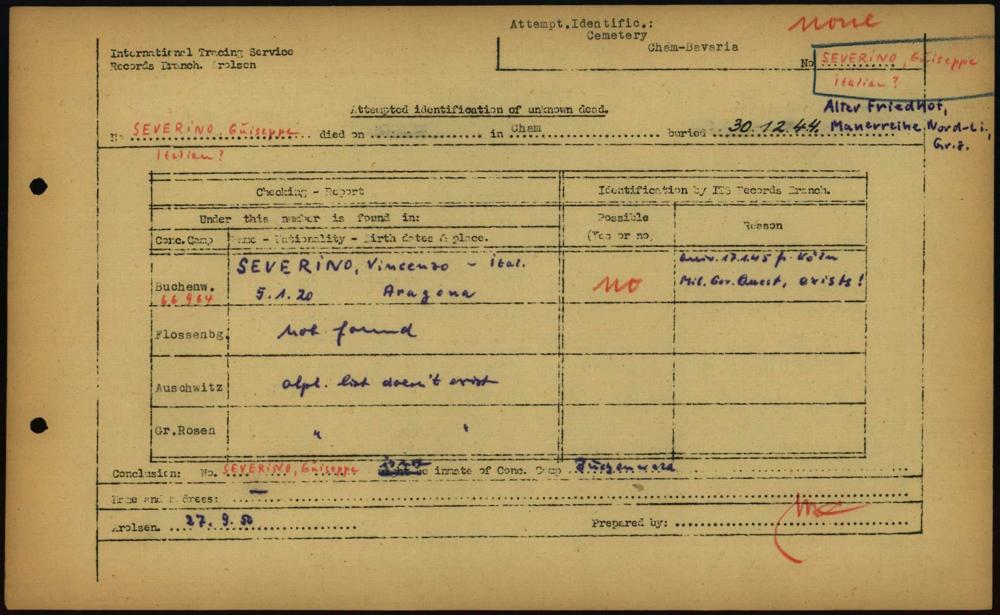 Attempt.Identific.:
none
Cemetery
Cham-Bavaria
International Tracing Service
Records Branch. Arolsen
No SEVERINO, Guiseppe
italian?
Alter Friedhof,
Attempted identification of unknown dead.
Mauerreihe, Nord-Li.,
Gr.7.
No SEVERINO, Guiseppe died on in Cham buried 30.12.44.
Italian?
Checking - Report
Identification by ITS Records Branch.
Under this number is found in:
Possible
(Yes or no)
Reason
Conc.Camp
Name - Nationality - Birth dates & place.
SEVERINO, Vincenzo - ital.
Buchenw.
66964
5.1.20 Aragona
no
17.1.45 f. Köln
Mil. Gov. Quest, exists!
Flossenbg.
not found
Auschwitz
alph. list doesn't exist
Gr.Rosen
" "
Conclusion: No. SEVERINO, Guiseppe is not inmate of Conc. Camp Buchenwald
Name and address: —
Arolsen. 27.9.50
Prepared by: